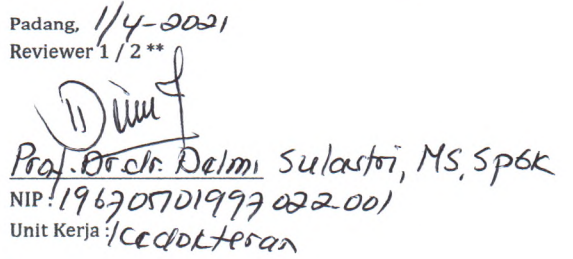 Padang, 1/4-2021
Reviewer 1 / 2 **
Prof. Dr. dr. Delmi Sulastri, MS, SpGK
NIP : 19670701997022001
Unit Kerja : Kedokteran